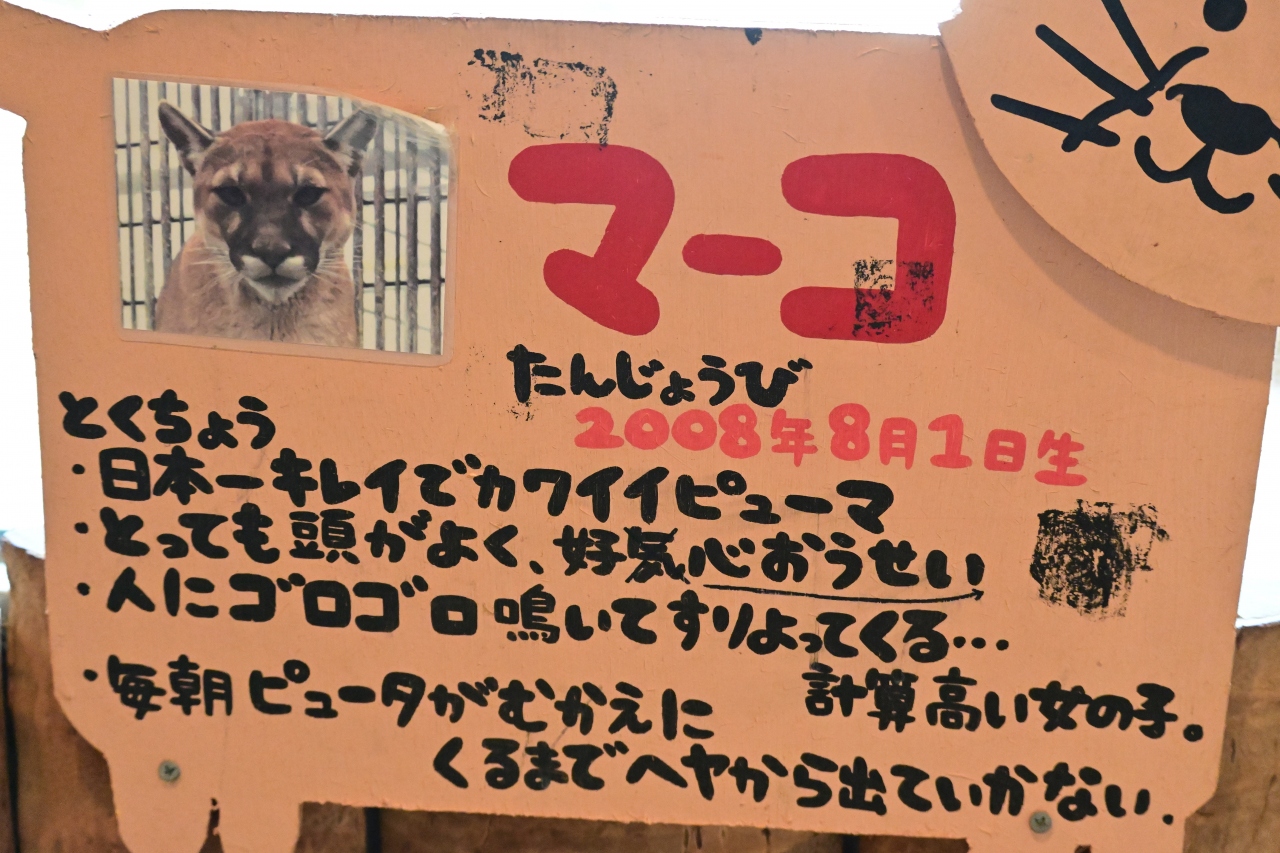 マーコ
たんじょうび
2008年8月1日生
とくちょう
・日本一キレイでカワイイピューマ
・とっても頭がよく、好気心おうせい
・人にゴロゴロ鳴いてすりよってくる…
計算高い女の子。
・毎朝ピュータがむかえに
くるまでヘヤから出ていかない。